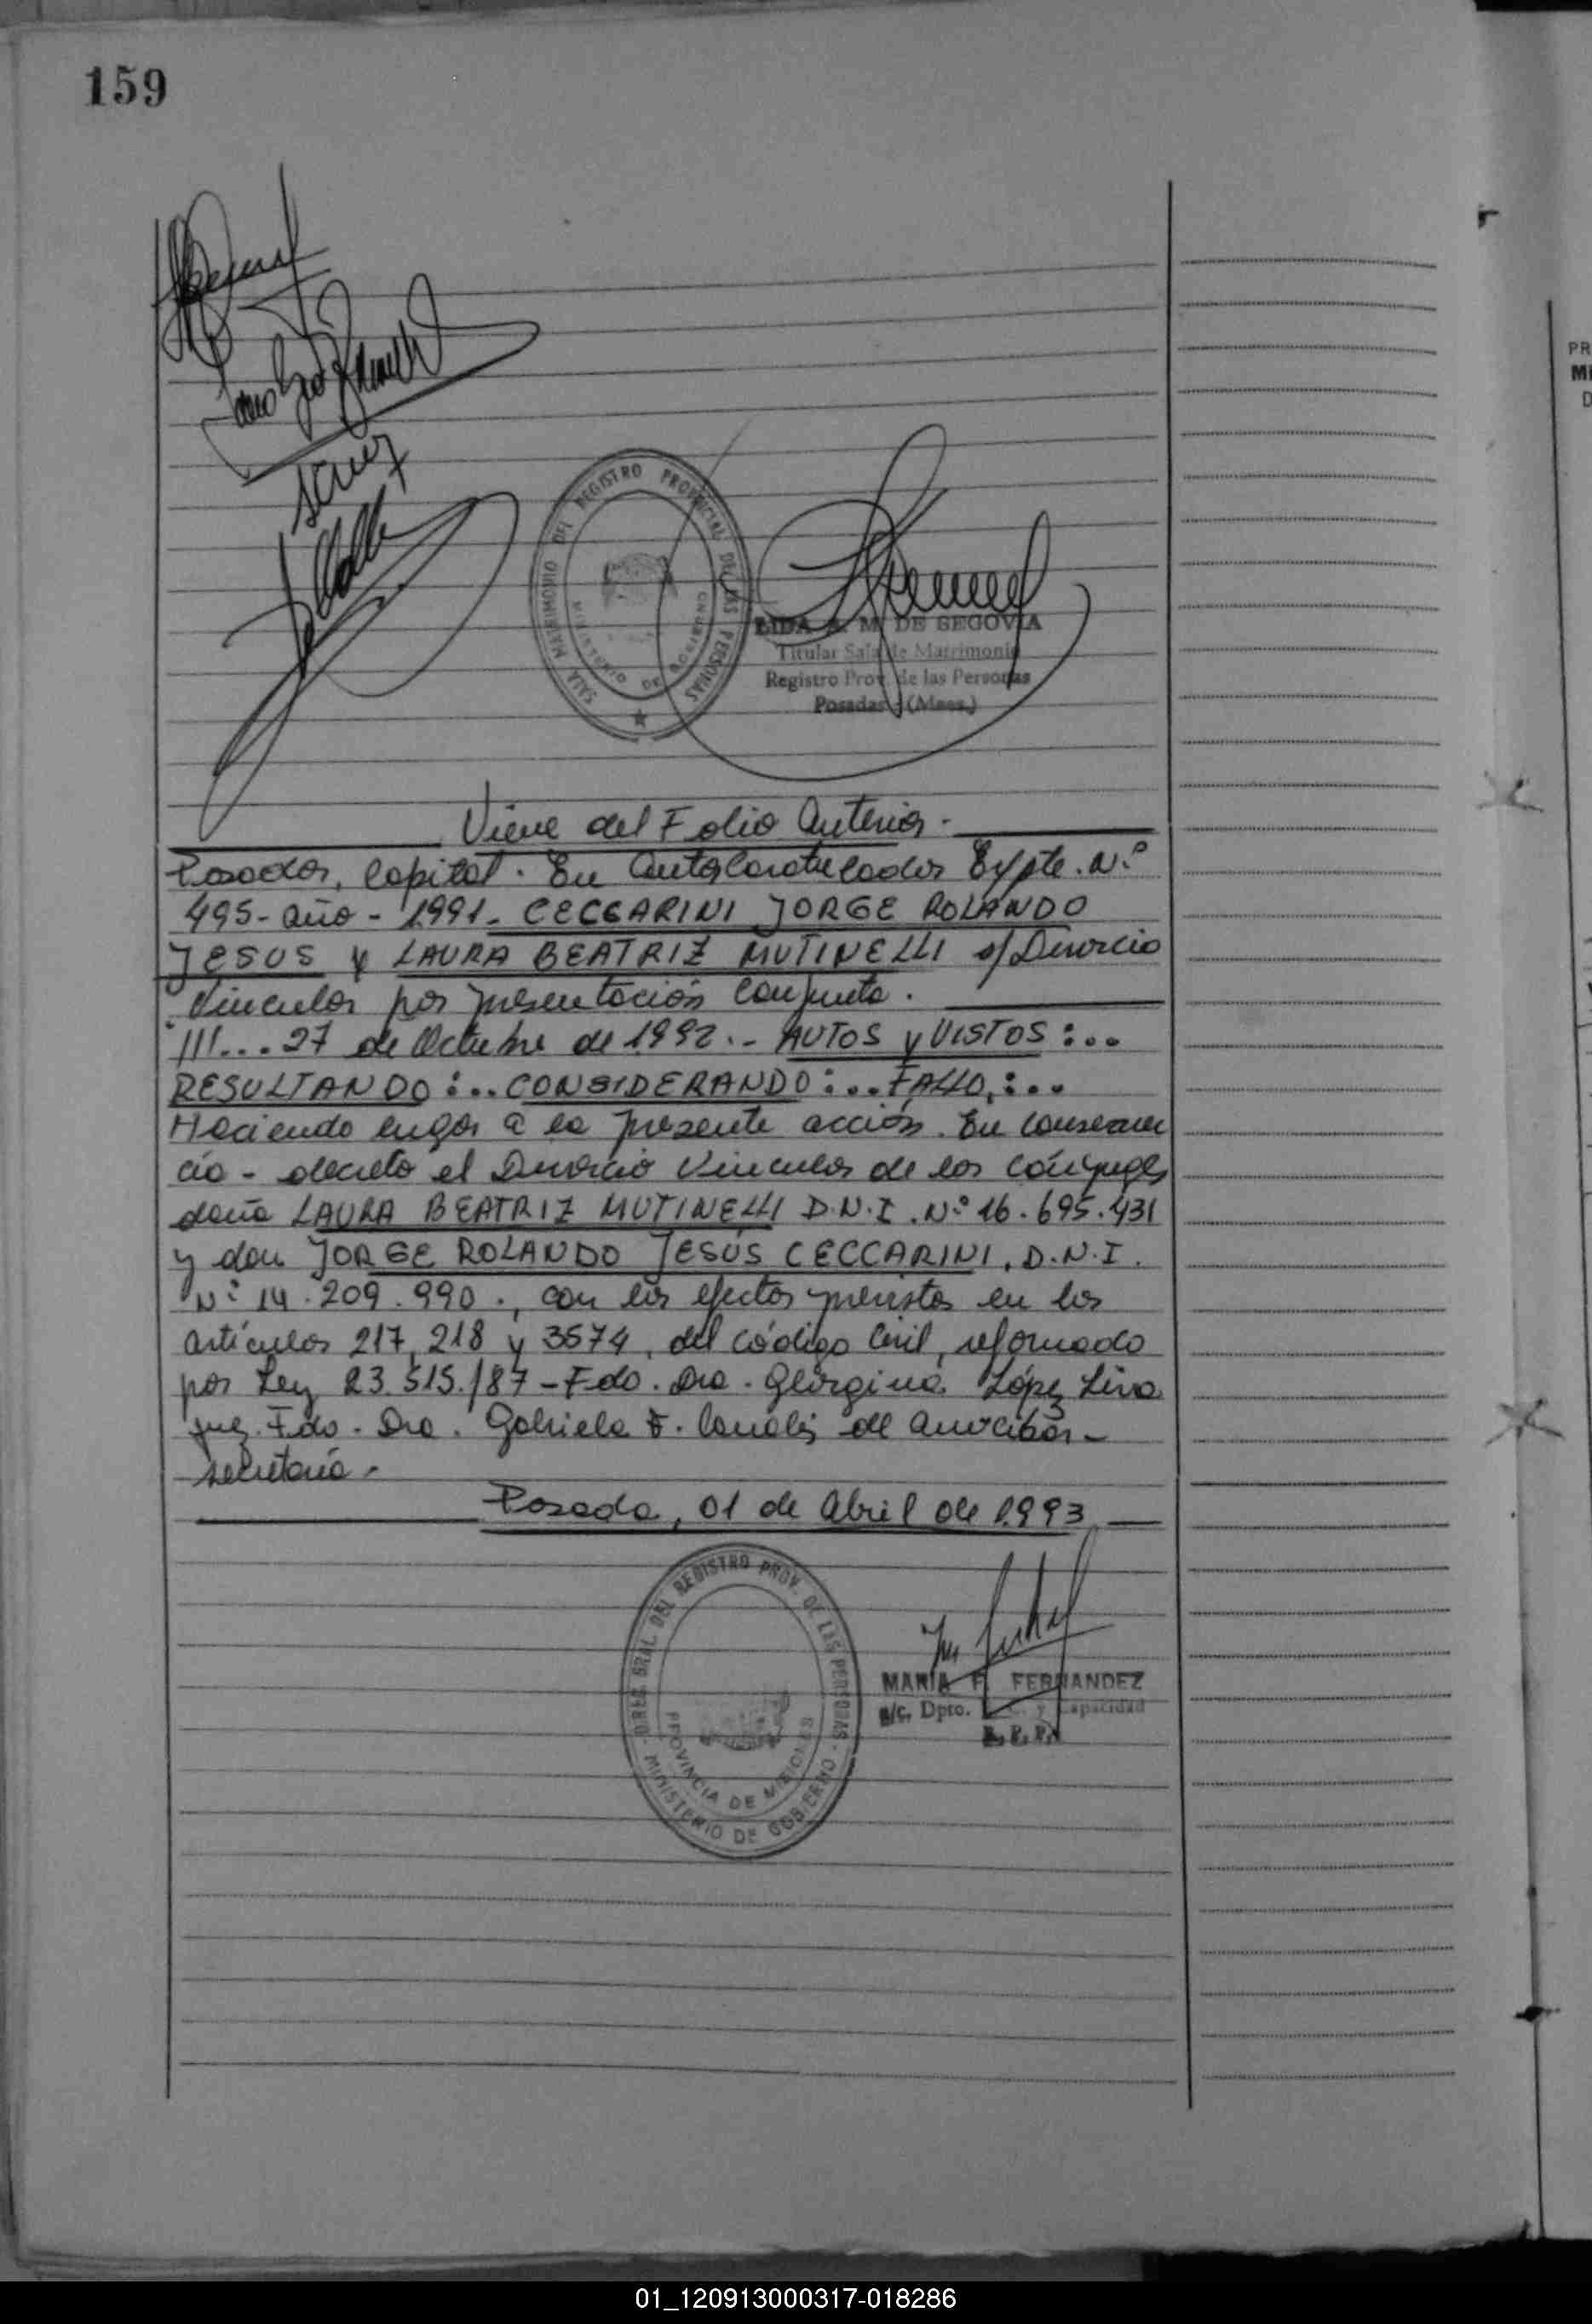 159
SALA MATRIMONIO DEL REGISTRO PROVINCIAL DE LAS PERSONAS
MINISTERIO DE GOBIERNO
LIDA A. M. DE SEGOVIA
Titular Sala de Matrimonio
Registro Prov. de las Personas
Posadas - (Mnes.)
Viene del Folio Anterior.
Posadas, Capital. En Autos Caratulados Expte. Nº
495- año - 1991- CECCARINI JORGE ROLANDO
JESUS y LAURA BEATRIZ MUTINELLI s/ Divorcio
Vincular por presentación Conjunta.
"///...27 de Octubre de 1992.- AUTOS y VISTOS:...
RESULTANDO:... CONSIDERANDO:... FALLO,:...
Haciendo lugar a la presente acción. En consecuen
cia - decreto el Divorcio Vincular de los cónyuges
doña LAURA BEATRIZ MUTINELLI D.N.I. Nº 16.695.431
y don JORGE ROLANDO JESÚS CECCARINI, D.N.I.
Nº 14.209.990., con los efectos previstos en los
artículos 217, 218 y 3574, del código Civil, reformado
por Ley 23.515./87 - Fdo. Dra. Georgina López Liva
juez. Fdo. Dra. Gabriela F. Canalis de
secretaria.-
Posada, 01 de Abril de 1993
DIREC. GRAL. DEL REGISTRO PROV. DE LAS PERSONAS
PROVINCIA DE MISIONES
MINISTERIO DE GOBIERNO
MARIA F. FERNANDEZ
a/c. Dpto. y Capacidad
R. P. P.
PR
MI
D
01_120913000317-018286